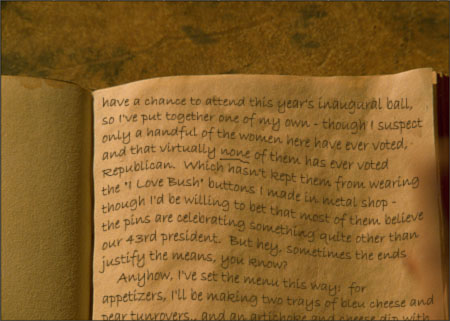 have a chance to attend this year's inaugural ball,
so I've put together one of my own - though I suspect
only a handful of the women here have ever voted,
and that virtually none of them has ever voted
Republican. Which hasn't kept them from wearing
the "I Love Bush" buttons I made in metal shop -
though I'd be willing to bet that most of them believe
the pins are celebrating something quite other than
our 43rd president. But hey, sometimes the ends
justify the means, you know?
Anyhow, I've set the menu this way: for
appetizers, I'll be making two trays of bleu cheese and
pear tunrovers.. and an artichoke and cheese dip with